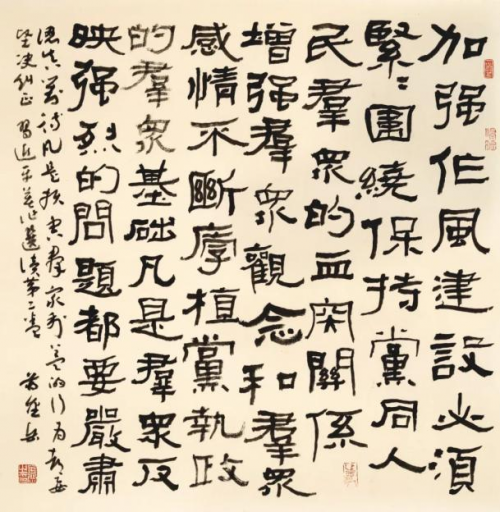 加强作風建設必須
緊〻圍繞保持黨同人
民羣衆的血肉關係
增强羣衆觀念和羣衆
感情不斷厚植黨執政
的羣衆基础凡是羣衆反
映强烈的問題都要嚴肅
認真對待凡是損害羣衆利益的行为都要
坚决纠正 習近平著作選讀第二卷